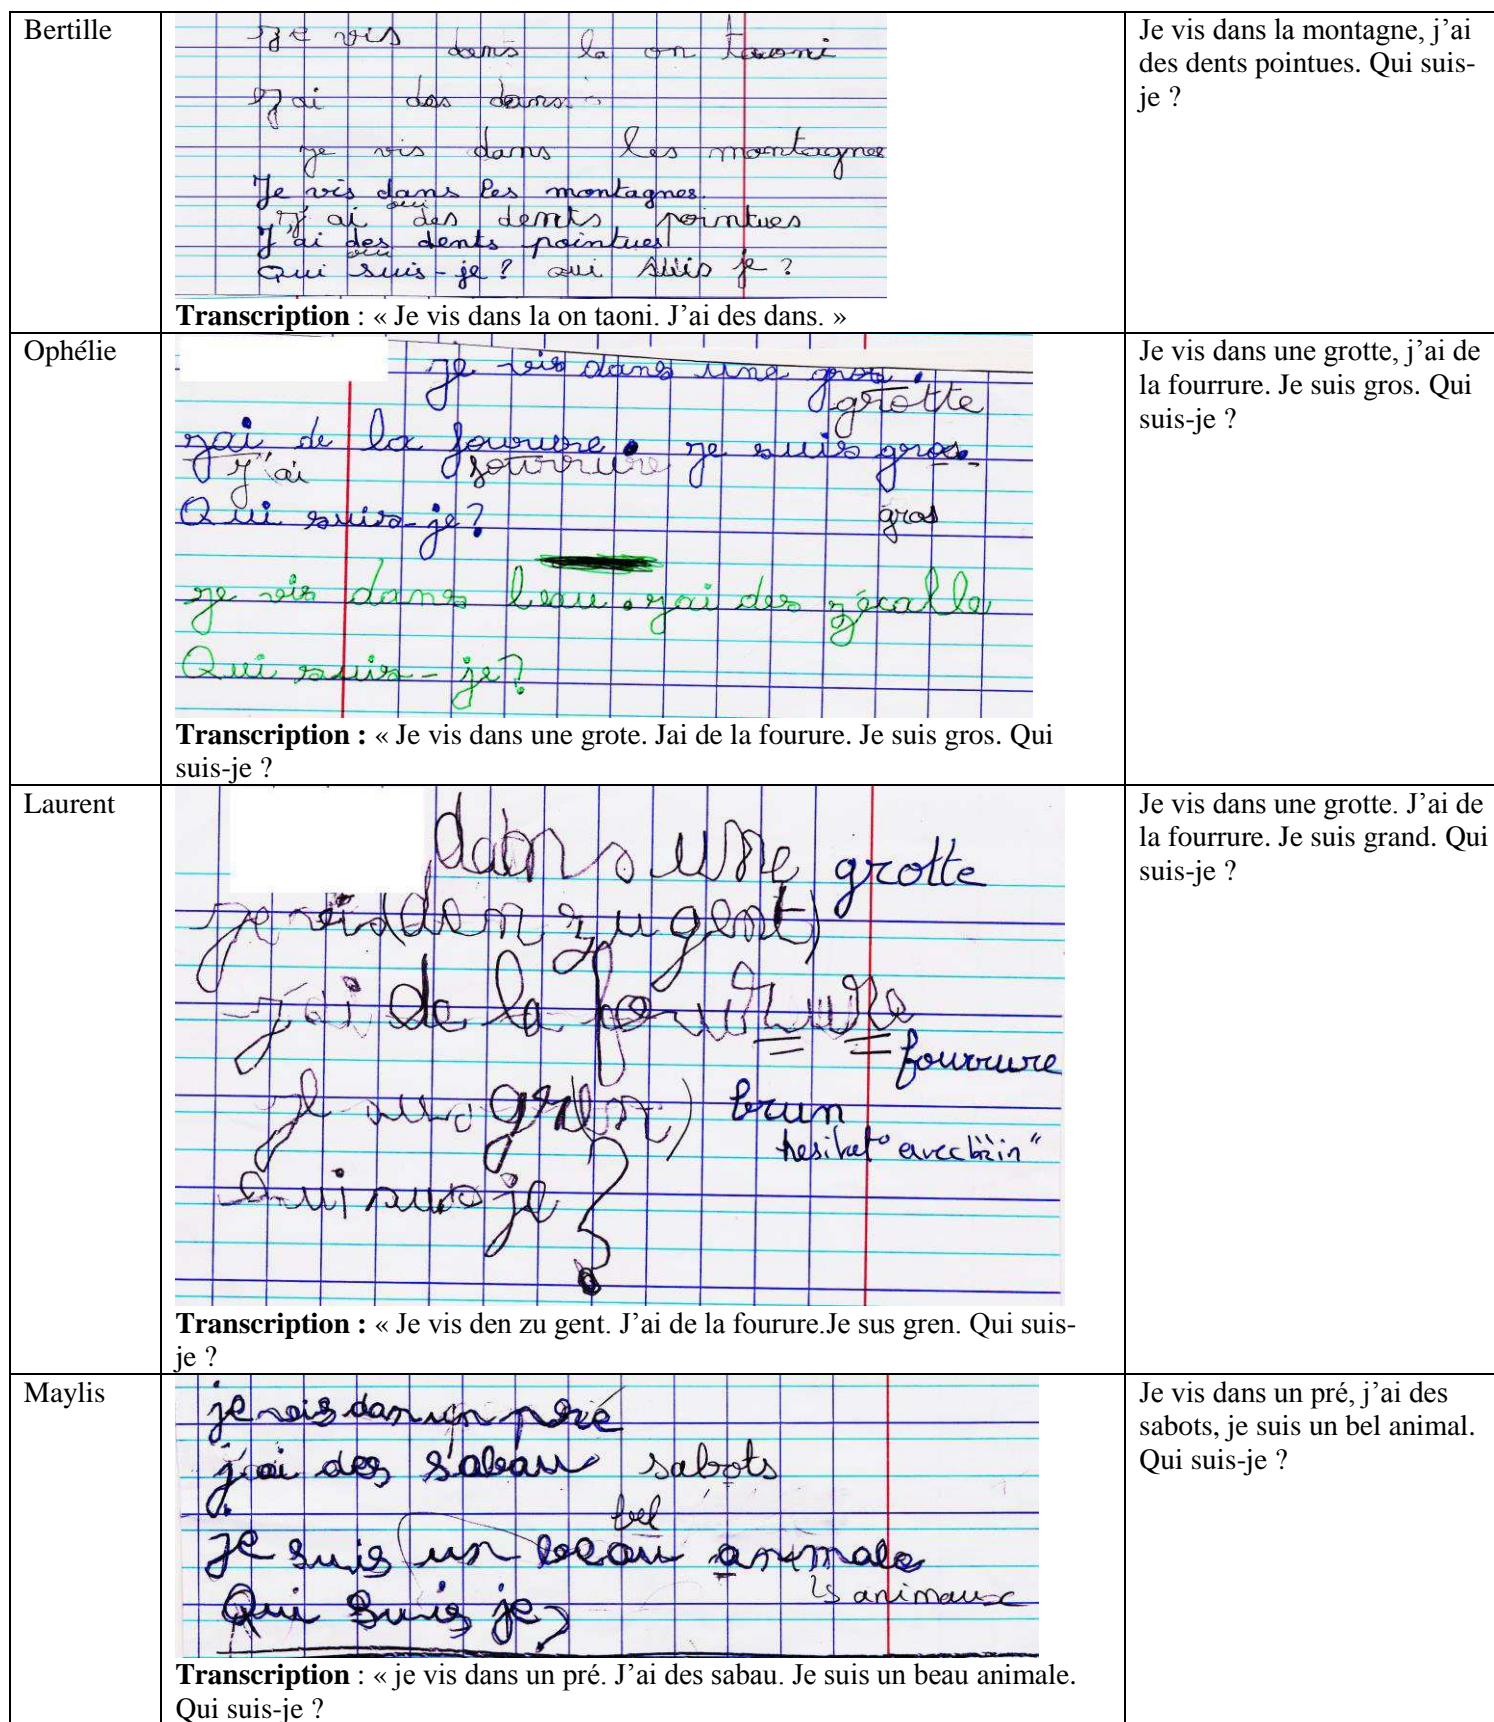 Bertille
je vis dans la on taoni
j ai des dans
je vis dans les montagnes
Je vis dans les montagnes.
oui
j'ai des dents pointues
J'ai des dents pointues
oui
Qui suis-je ? qui suis je ?
Transcription : « Je vis dans la on taoni. J'ai des dans. »
Je vis dans la montagne, j'ai
des dents pointues. Qui suis-
je ?
Ophélie
je vis dans une grote.
grotte
jai de la fourure. je suis gros.
j'ai fourrure
Qui suis-je? gros
je vis dans leau. jai des zécalle
Qui suis-je?
Transcription : « Je vis dans une grote. Jai de la fourure. Je suis gros. Qui
suis-je ?
Je vis dans une grotte, j'ai de
la fourrure. Je suis gros. Qui
suis-je ?
Laurent
dans une grotte
je vis den zu gent)
j'ai de la fourure
fourrure
je sus gren) brun
hésitat° avec "in"
Qui sus je ?
Transcription : « Je vis den zu gent. J'ai de la fourure.Je sus gren. Qui suis-
je ?
Je vis dans une grotte. J'ai de
la fourrure. Je suis grand. Qui
suis-je ?
Maylis
je vis dans un pré
j'ai des sabau sabots
bel
Je suis un beau animale
animaux
Qui suis je ?
Transcription : « je vis dans un pré. J'ai des sabau. Je suis un beau animale.
Qui suis-je ?
Je vis dans un pré, j'ai des
sabots, je suis un bel animal.
Qui suis-je ?